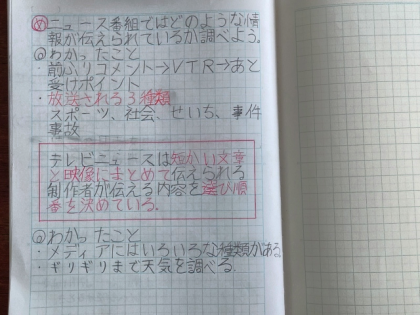 めニュース番組ではどのような情
報が伝えられているか調べよう。
○わかったこと
・前ふりコメント→VTR→あと
受けポイント
・放送される3種類
スポーツ、社会、せいち、事件
事故
テレビニュースは短かい文章
と映像にまとめて伝えられる
制作者が伝える内容を選び順
番を決めている。
○わかったこと
・メディアにはいろいろな種類がある
・ギリギリまで天気を調べる